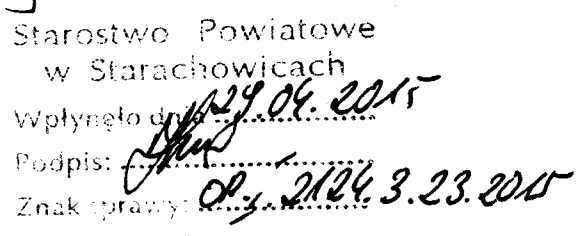 Starostwo Powiatowe
w Starachowicach
Wpłynęło dnia 29.04.2015
Podpis:
Znak sprawy: 2124.3.23.2015